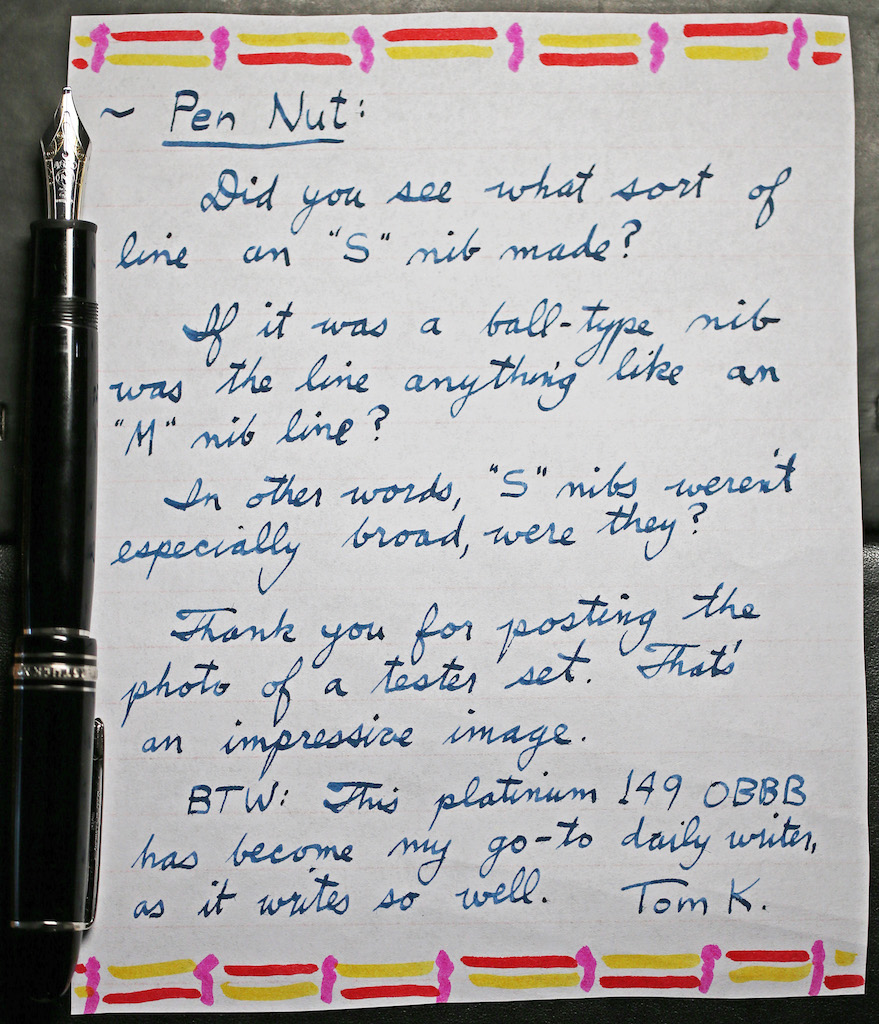 ~ Pen Nut:
Did you see what sort of
line an "S" nib made?
If it was a ball-type nib
was the line anything like an
"M" nib line?
In other words, "S" nibs weren't
especially broad, were they?
Thank you for posting the
photo of a tester set. That's
an impressive image.
BTW: This platinium 149 OBBB
has become my go-to daily writer,
as it writes so well. Tom K.